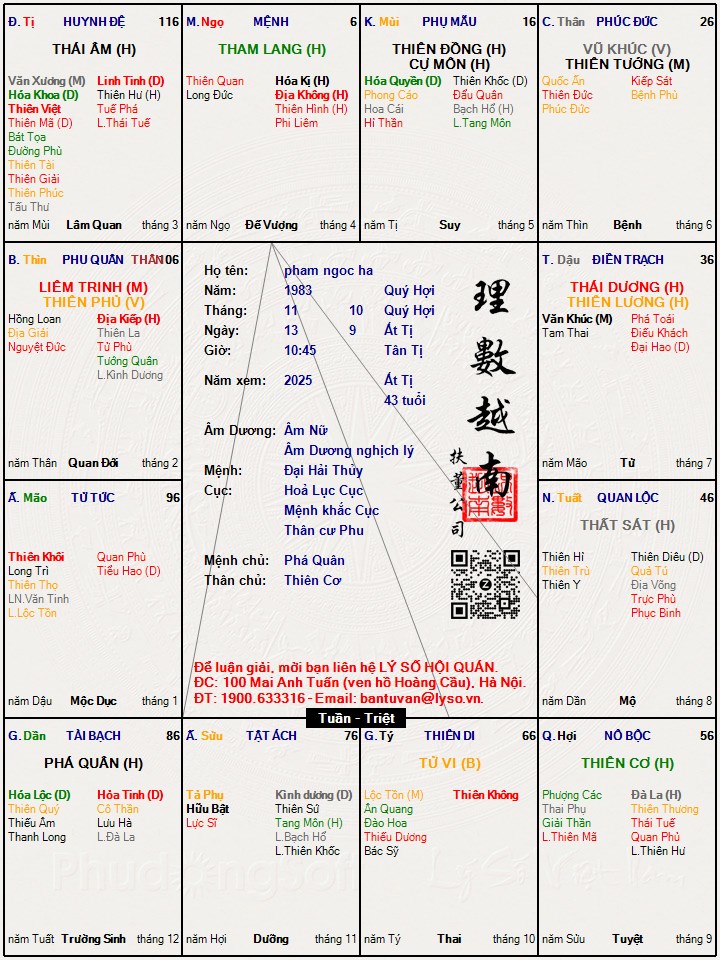 Đ. Tị HUYNH ĐỆ 116
THÁI ÂM (H)
Văn Xương (M) Linh Tinh (D)
Hóa Khoa (D) Thiên Hư (H)
Thiên Việt Tuế Phá
Thiên Mã (D) L.Thái Tuế
Bát Tọa
Đường Phù
Thiên Tài
Thiên Giải
Thiên Phúc
Tấu Thư
năm Mùi Lâm Quan tháng 3
M. Ngọ MỆNH 6
THAM LANG (H)
Thiên Quan Hóa Kị (H)
Long Đức Địa Không (H)
Thiên Hình (H)
Phi Liêm
năm Ngọ Đế Vượng tháng 4
K. Mùi PHỤ MẪU 16
THIÊN ĐỒNG (H)
CỰ MÔN (H)
Hóa Quyền (D) Thiên Khốc (D)
Phong Cáo Đẩu Quân
Hoa Cái Bạch Hổ (H)
Hỉ Thần L.Tang Môn
năm Tị Suy tháng 5
C. Thân PHÚC ĐỨC 26
VŨ KHÚC (V)
THIÊN TƯỚNG (M)
Quốc Ấn Kiếp Sát
Thiên Đức Bệnh Phù
Phúc Đức
năm Thìn Bệnh tháng 6
B. Thìn PHU QUÂN THÂN 106
LIÊM TRINH (M)
THIÊN PHỦ (V)
Hồng Loan Địa Kiếp (H)
Địa Giải Thiên La
Nguyệt Đức Tử Phù
Tướng Quân
L.Kình Dương
năm Thân Quan Đới tháng 2
Họ tên: pham ngoc ha
Năm: 1983 Quý Hợi
Tháng: 11 10 Quý Hợi
Ngày: 13 9 Ất Tị
Giờ: 10:45 Tân Tị
Năm xem: 2025 Ất Tị
43 tuổi
Âm Dương: Âm Nữ
Âm Dương nghịch lý
Mệnh: Đại Hải Thủy
Cục: Hoả Lục Cục
Mệnh khắc Cục
Thân cư Phu
Mệnh chủ: Phá Quân
Thân chủ: Thiên Cơ
理數越南
扶董公司
Để luận giải, mời bạn liên hệ LÝ SỐ HỘI QUÁN.
ĐC: 100 Mai Anh Tuấn (ven hồ Hoàng Cầu), Hà Nội.
ĐT: 1900.633316 - Email: bantuvan@lyso.vn.
Tuần - Triệt
T. Dậu ĐIỀN TRẠCH 36
THÁI DƯƠNG (H)
THIÊN LƯƠNG (H)
Văn Khúc (M) Phá Toái
Tam Thai Điếu Khách
Đại Hao (D)
năm Mão Tử tháng 7
Ấ. Mão TỬ TỨC 96
Thiên Khôi Quan Phù
Long Trì Tiểu Hao (D)
Thiên Thọ
LN.Văn Tinh
L.Lộc Tồn
năm Dậu Mộc Dục tháng 1
N. Tuất QUAN LỘC 46
THẤT SÁT (H)
Thiên Hỉ Thiên Diêu (D)
Thiên Trù Quả Tú
Thiên Y Địa Võng
Trực Phù
Phục Binh
năm Dần Mộ tháng 8
G. Dần TÀI BẠCH 86
PHÁ QUÂN (H)
Hóa Lộc (D) Hỏa Tinh (D)
Thiên Quý Cô Thần
Thiếu Âm Lưu Hà
Thanh Long L.Đà La
năm Tuất Trường Sinh tháng 12
Ấ. Sửu TẬT ÁCH 76
Tả Phụ Kình dương (D)
Hữu Bật Thiên Sứ
Lực Sĩ Tang Môn (H)
L.Bạch Hổ
L.Thiên Khốc
năm Hợi Dưỡng tháng 11
G. Tý THIÊN DI 66
TỬ VI (B)
Lộc Tồn (M) Thiên Không
Ân Quang
Đào Hoa
Thiếu Dương
Bác Sỹ
năm Tý Thai tháng 10
Q. Hợi NÔ BỘC 56
THIÊN CƠ (H)
Phượng Các Đà La (H)
Thai Phụ Thiên Thương
Giải Thần Thái Tuế
L.Thiên Mã Quan Phủ
L.Thiên Hư
năm Sửu Tuyệt tháng 9